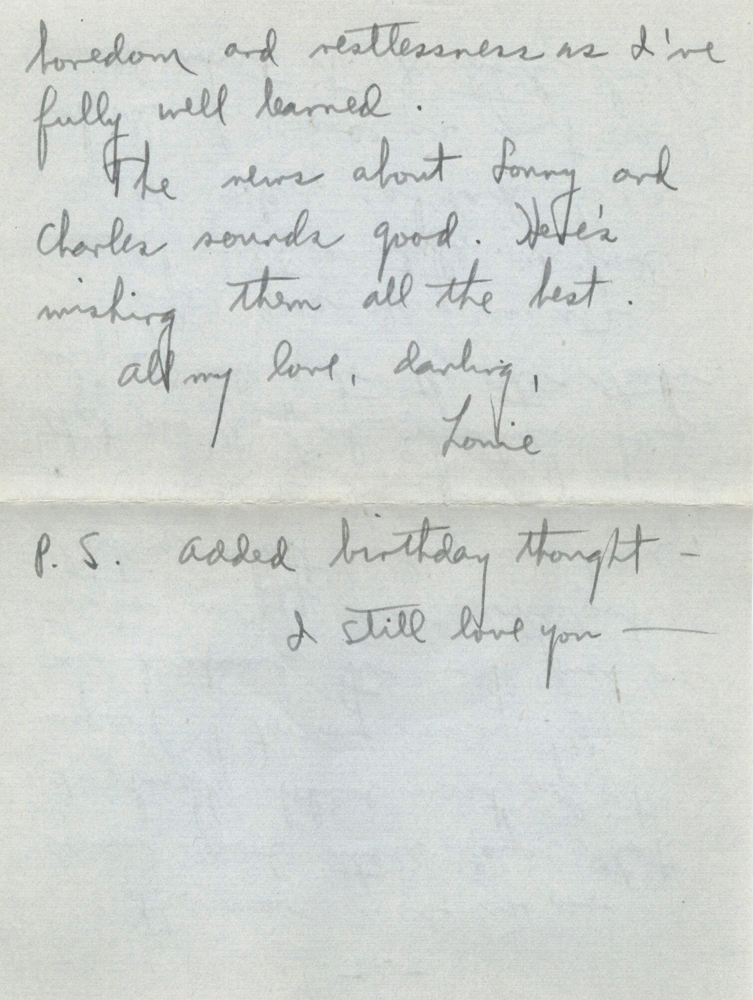 boredom and restlessness as I've
fully well learned.
The news about Sonny and
Charles sounds good. Here's
wishing them all the best.
All my love, darling,
Louie
P.S. Added birthday thought -
I still love you —